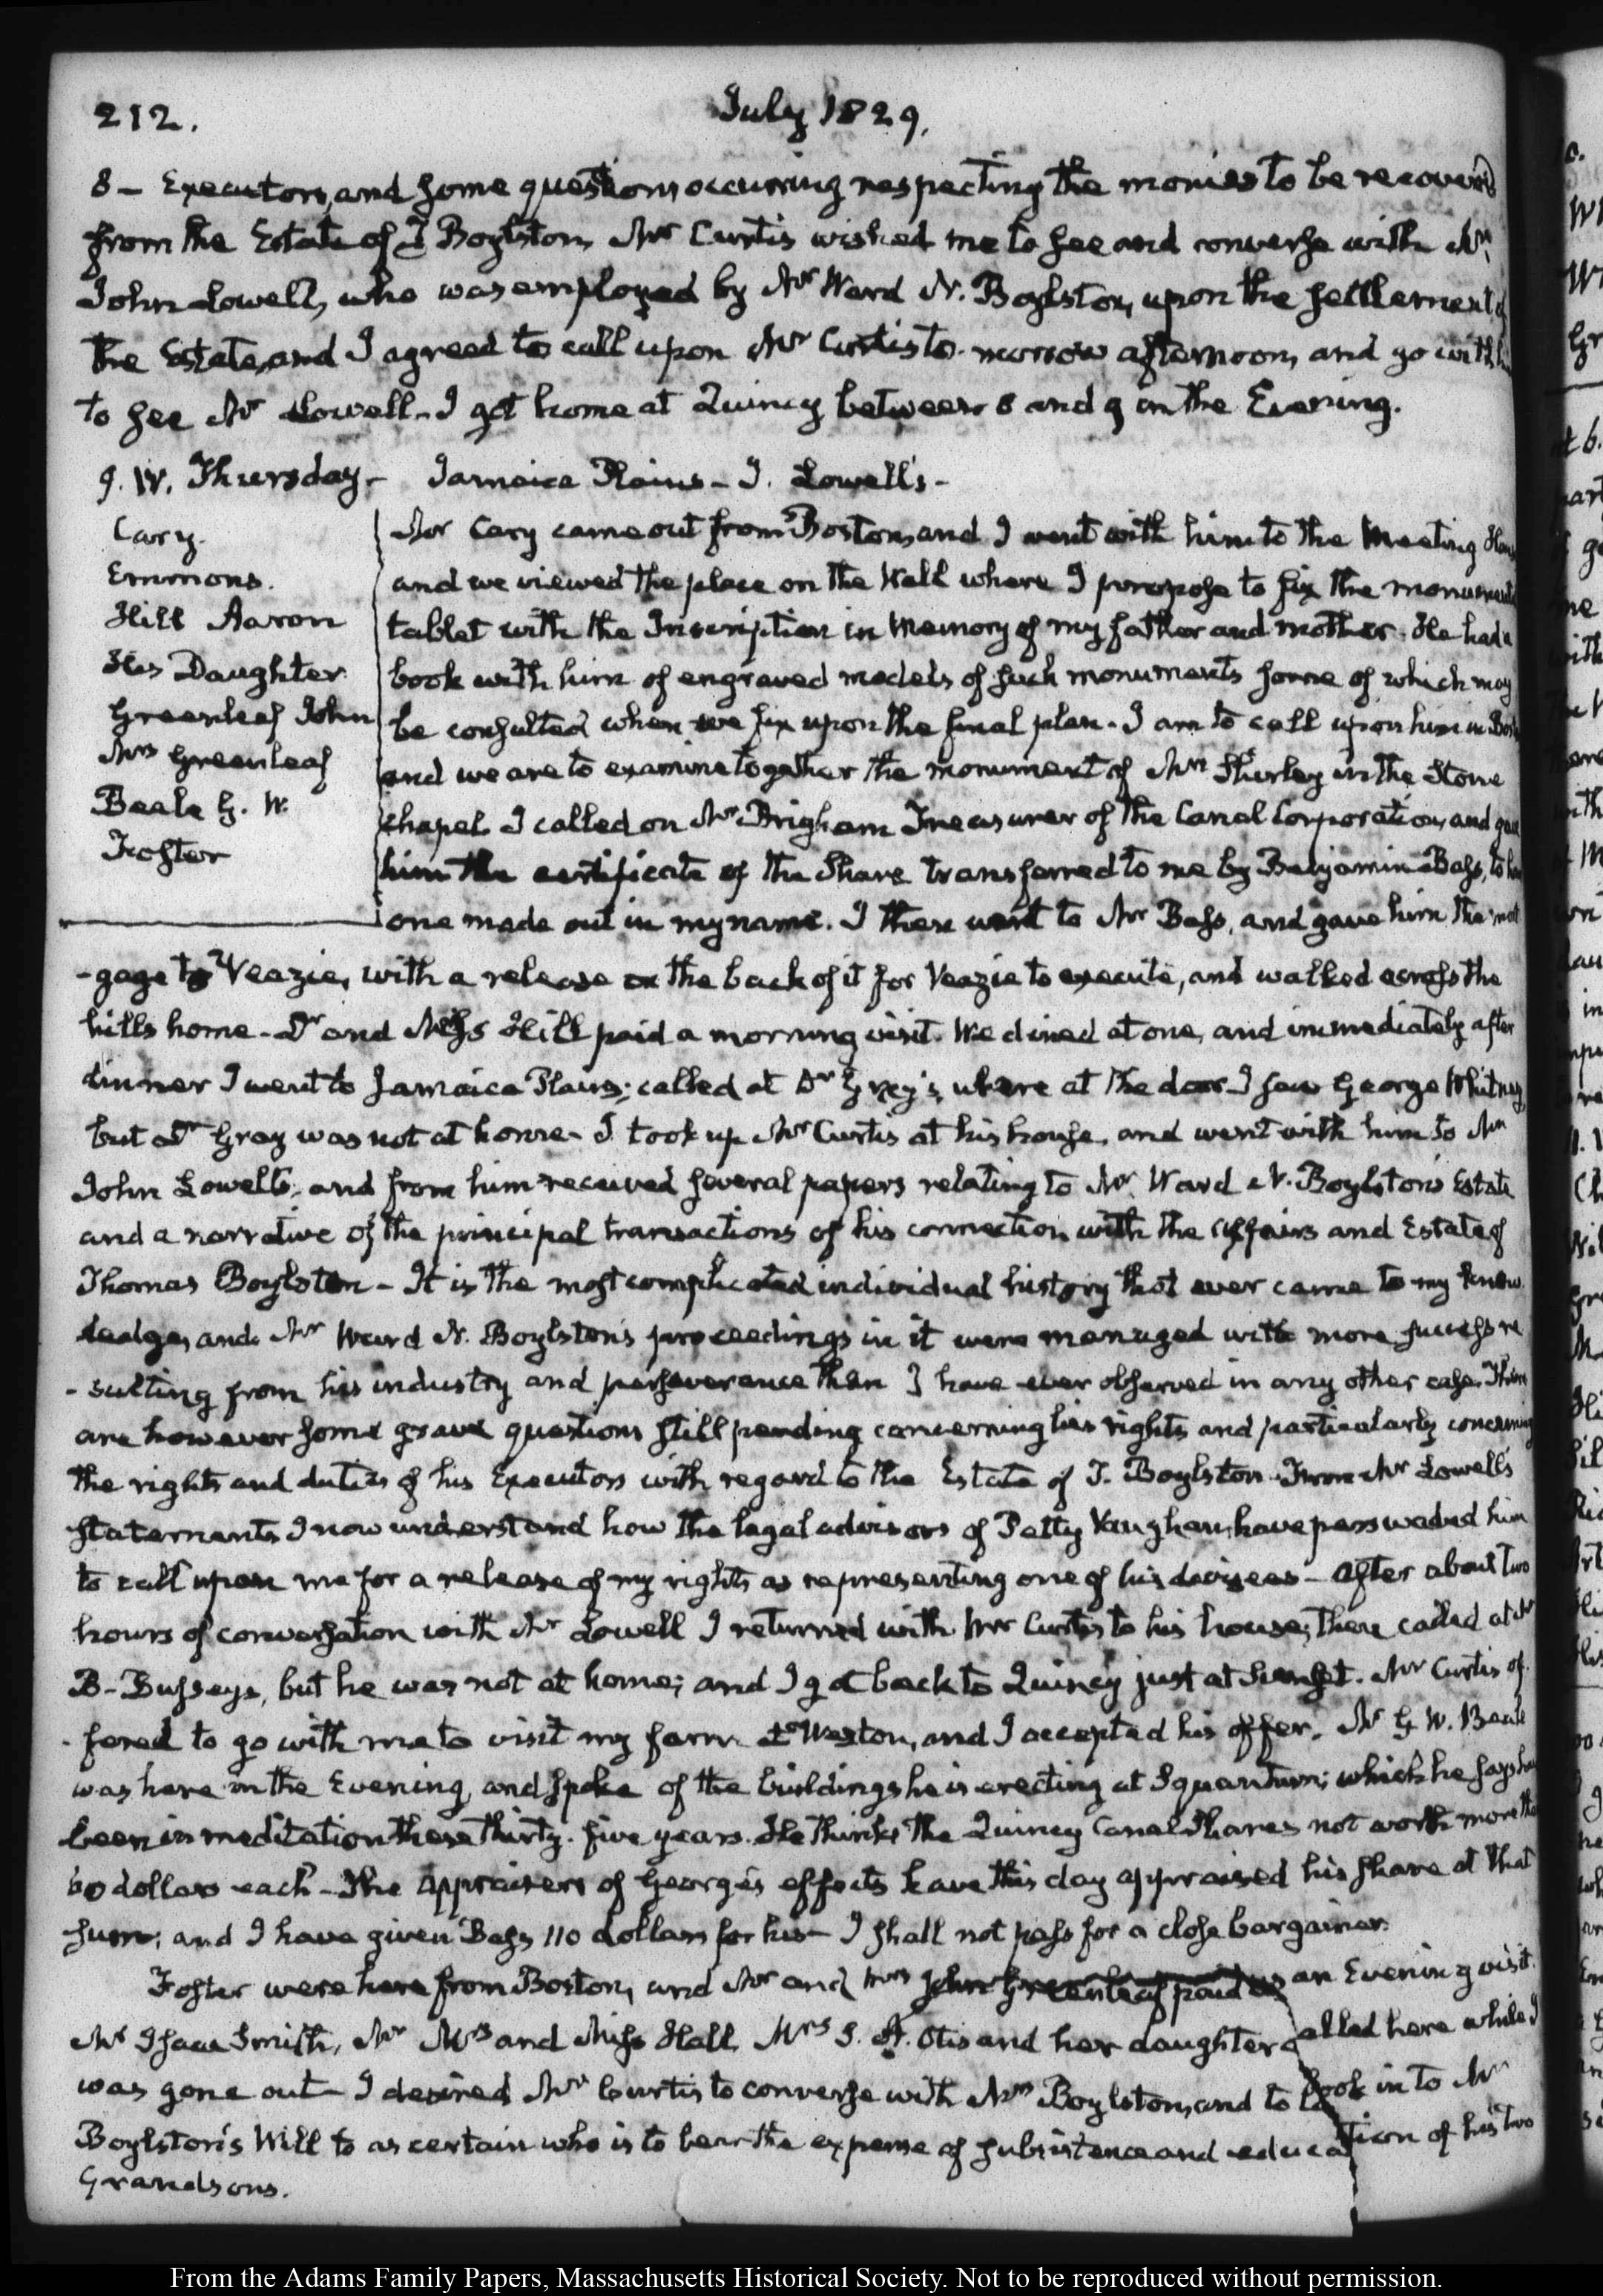 212.
July 1829.
8 – Executors, and some questions occurring respecting the monies to be recovered
from the Estate of T Boylston, Mr Curtis wished me to see and converse with Mr
John Lowell, who was employed by Mr Ward N. Boylston, upon the settlement of
the Estate, and I agreed to call upon Mr Curtis to-morrow afternoon, and go with him
to see Mr Lowell – I got home at Quincy between 8 and 9 in the Evening.
9. IV. Thursday – Jamaica Plains – J. Lowell's –
Cary.
Emmons.
Hill Aaron
His Daughter
Greenleaf John
Mrs Greenleaf
Beale G. W.
Foster
Mr Cary came out from Boston, and I went with him to the Meeting House
and we viewed the place on the Wall where I propose to fix the monumental
tablet with the Inscription in Memory of my father and mother. He had a
book with him of engraved models of such monuments some of which may
be consulted when we fix upon the final plan – I am to call upon him in Boston
and we are to examine together the monument of Mrs Shirley in the Stone
chapel. I called on Mr Brigham Treasurer of the Canal Corporation, and gave
him the certificate of the Share transferred to me by Benjamin Bass, to have
one made out in my name. I then went to Mr Bass, and gave him the mort
-gage to Veazie, with a release on the back of it for Veazie to execute, and walked across the
hills home – Dr and Miss Hill paid a morning visit. We dined at one, and immediately after
dinner I went to Jamaica Plains; called at Dr Grey's, where at the door I saw George Whitney,
but Dr Gray was not at home – I took up Mr Curtis at his house, and went with him to Mr
John Lowell's; and from him received several papers relating to Mr Ward N. Boylston's Estate
and a narrative of the principal transactions of his connection with the affairs and Estate of
Thomas Boylston – It is the most complicated individual history that ever came to my know
ledge, and Mr Ward N. Boylston's proceedings in it were managed with more success re
-sulting from his industry and perseverance than I have ever observed in any other case. There
are however some grave questions still pending concerning his rights and particularly concerning
the rights and duties of his Executors with regard to the Estate of T. Boylston. From Mr Lowell's
statements I now understand how the legal advisors of Petty Vaughan, have perswaded him
to call upon me for a release of my rights as representing one of his devisees – After about two
hours of conversation with Mr Lowell I returned with Mr Curtis to his house; then called at Mr
B– Bussey's, but he was not at home; and I got back to Quincy just at Sunset. Mr Curtis of
-fered to go with me to visit my farm at Weston, and I accepted his offer. Mr G. W. Beale
was here in the Evening, and spoke of the buildings he is erecting at Squantum; which he says has
been in meditation these thirty-five years. He thinks the Quincy Canal Shares not worth more than
60 dollars each – The Appraisers of George's effects have this day appraised his share at that
sum; and I have given Bass 110 dollars for his – I shall not pass for a close bargainer.
Foster were here from Boston, and Mr and Mrs John Greenleaf paid us an Evening visit.
Mr Isaac Smith, Mr Mrs and Miss Hall, Mrs S. A. Otis and her daughter called here while I
was gone out – I desired Mr Curtis to converse with Mrs Boylston, and to look in to Mr
Boylston's Will to ascertain who is to bear the expense of subsistence and education of his two
Grandsons.
From the Adams Family Papers, Massachusetts Historical Society. Not to be reproduced without permission.